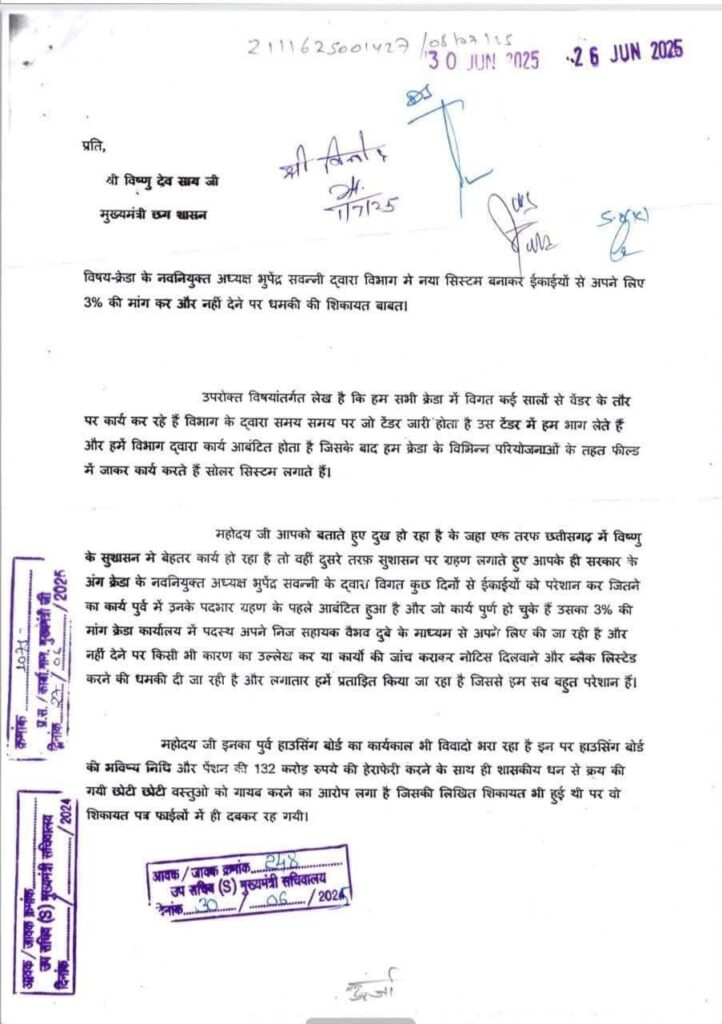 2111625001427 / 08/07/25
30 JUN 2025
26 JUN 2025
प्रति,
श्री विष्णु देव साय जी
मुख्यमंत्री छग शासन
श्री
1/7/25
विषय-क्रेडा के नवनियुक्त अध्यक्ष भुपेंद्र सवन्नी द्वारा विभाग मे नया सिस्टम बनाकर ईकाईयों से अपने लिए
3% की मांग कर और नहीं देने पर धमकी की शिकायत बाबत।
उपरोक्त विषयांतर्गत लेख है कि हम सभी क्रेडा में विगत कई सालों से वेंडर के तौर
पर कार्य कर रहे हैं विभाग के द्वारा समय समय पर जो टेंडर जारी होता है उस टेंडर में हम भाग लेते हैं
और हमें विभाग द्वारा कार्य आबंटित होता है जिसके बाद हम क्रेडा के विभिन्न परियोजनाओं के तहत फील्ड
में जाकर कार्य करते हैं सोलर सिस्टम लगाते हैं।
महोदय जी आपको बताते हुए दुख हो रहा है के जहा एक तरफ छत्तीसगढ़ में विष्णु
के सुशासन मे बेहतर कार्य हो रहा है तो वहीं दुसरे तरफ़ सुशासन पर ग्रहण लगाते हुए आपके ही सरकार के
अंग क्रेडा के नवनियुक्त अध्यक्ष भुपेंद्र सवन्नी के द्वारा विगत कुछ दिनों से ईकाईयों को परेशान कर जितने
का कार्य पुर्व में उनके पदभार ग्रहण के पहले आबंटित हुआ है और जो कार्य पुर्ण हो चुके हैं उसका 3% की
मांग क्रेडा कार्यालय में पदस्थ अपने निज सहायक वैभव दुबे के माध्यम से अपने लिए की जा रही है और
नहीं देने पर किसी भी कारण का उल्लेख कर या कार्यो की जांच कराकर नोटिस दिलवाने और ब्लैक लिस्टेड
करने की धमकी दी जा रही है और लगातार हमें प्रताड़ित किया जा रहा है जिससे हम सब बहुत परेशान हैं।
महोदय जी इनका पुर्व हाउसिंग बोर्ड का कार्यकाल भी विवादो भरा रहा है इन पर हाउसिंग बोर्ड
की भविष्य निधि और पेंशन की 132 करोड़ रुपये की हेराफेरी करने के साथ ही शासकीय धन से क्रय की
गयी छोटी छोटी वस्तुओ को गायब करने का आरोप लगा है जिसकी लिखित शिकायत भी हुई थी पर वो
शिकायत पत्र फाईलों में ही दबकर रह गयी।
क्रमांक 1071-
दिनांक 27/06/2025
आवक / जावक क्रमांक
उप सचिव (S) मुख्यमंत्री सचिवालय
दिनांक / /2024
आवक / जावक क्रमांक 248
उप सचिव (S) मुख्यमंत्री सचिवालय
दिनांक 30 / 06 / 2025
ऊर्जा